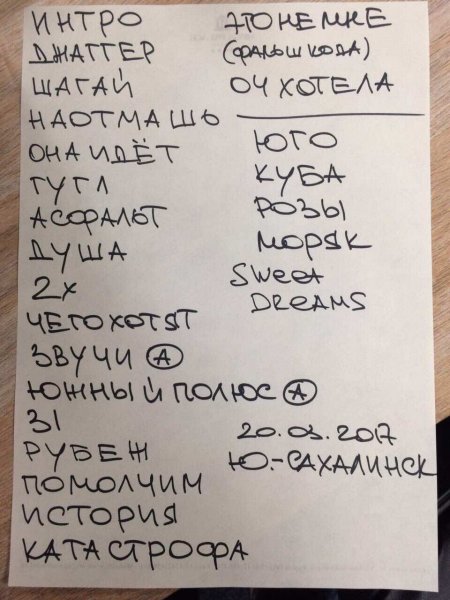 ИНТРО
ДЖАГГЕР
ШАГАЙ
НАОТМАШЬ
ОНА ИДЁТ
ГУГЛ
АСФАЛЬТ
ДУША
2х
ЧЕГО ХОТЯТ
ЗВУЧИ А
ЮЖНЫЙ ПОЛЮС А
31
РУБЕЖ
ПОМОЛЧИМ
ИСТОРИЯ
КАТАСТРОФА
ЭТО НЕ МНЕ
(ФАЛЬШ КОДА)
ОЧ ХОТЕЛА
ЮГО
КУБА
РОЗЫ
МОРЯК
Sweet
DREAMS
20.03.2017
Ю.-САХАЛИНСК